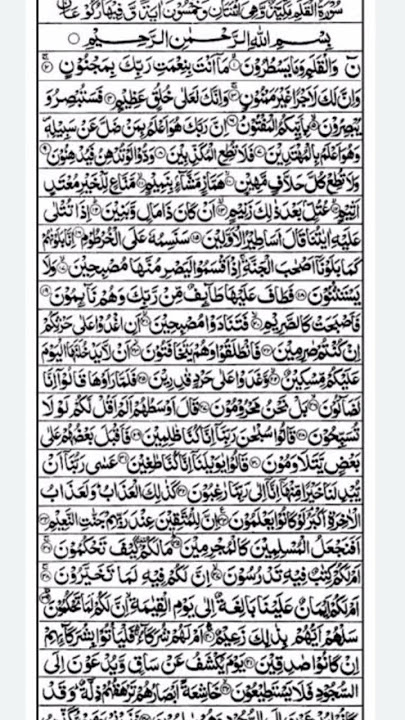 سُوْرَةُ الْقَلَمِ مَكِّيَّةٌ وَّهِىَ اثْنَتَانِ وَخَمْسُوْنَ اٰيَةً وَّفِيْهَا رُكُوْعَانِ
بِسْمِ اللّٰهِ الرَّحْمٰنِ الرَّحِيْمِ
نٓ وَالْقَلَمِ وَمَا يَسْطُرُوْنَ مَآ اَنْتَ بِنِعْمَةِ رَبِّكَ بِمَجْنُوْنٍ
وَاِنَّ لَكَ لَاَجْرًا غَيْرَ مَمْنُوْنٍ وَاِنَّكَ لَعَلٰى خُلُقٍ عَظِيْمٍ فَسَتُبْصِرُ وَ
يُبْصِرُوْنَ بِاَيِّكُمُ الْمَفْتُوْنُ اِنَّ رَبَّكَ هُوَ اَعْلَمُ بِمَنْ ضَلَّ عَنْ سَبِيْلِهٖ
وَهُوَ اَعْلَمُ بِالْمُهْتَدِيْنَ فَلَا تُطِعِ الْمُكَذِّبِيْنَ وَدُّوْا لَوْ تُدْهِنُ فَيُدْهِنُوْنَ
وَلَا تُطِعْ كُلَّ حَلَّافٍ مَّهِيْنٍ هَمَّازٍ مَّشَّآءٍ بِنَمِيْمٍ مَّنَّاعٍ لِّلْخَيْرِ مُعْتَدٍ
اَثِيْمٍ عُتُلٍّ بَعْدَ ذٰلِكَ زَنِيْمٍ اَنْ كَانَ ذَا مَالٍ وَّبَنِيْنَ اِذَا تُتْلٰى
عَلَيْهِ اٰيٰتُنَا قَالَ اَسَاطِيْرُ الْاَوَّلِيْنَ سَنَسِمُهٗ عَلَى الْخُرْطُوْمِ اِنَّا بَلَوْنٰهُمْ
كَمَا بَلَوْنَآ اَصْحٰبَ الْجَنَّةِ اِذْ اَقْسَمُوْا لَيَصْرِمُنَّهَا مُصْبِحِيْنَ وَلَا
يَسْتَثْنُوْنَ فَطَافَ عَلَيْهَا طَآئِفٌ مِّنْ رَّبِّكَ وَهُمْ نَآئِمُوْنَ
فَاَصْبَحَتْ كَالصَّرِيْمِ فَتَنَادَوْا مُصْبِحِيْنَ اَنِ اغْدُوْا عَلٰى حَرْثِكُمْ
اِنْ كُنْتُمْ صٰرِمِيْنَ فَانْطَلَقُوْا وَهُمْ يَتَخَافَتُوْنَ اَنْ لَّا يَدْخُلَنَّهَا الْيَوْمَ
عَلَيْكُمْ مِّسْكِيْنٌ وَّغَدَوْا عَلٰى حَرْدٍ قٰدِرِيْنَ فَلَمَّا رَاَوْهَا قَالُوْٓا اِنَّا
لَضَآلُّوْنَ بَلْ نَحْنُ مَحْرُوْمُوْنَ قَالَ اَوْسَطُهُمْ اَلَمْ اَقُلْ لَّكُمْ لَوْ لَا
تُسَبِّحُوْنَ قَالُوْا سُبْحٰنَ رَبِّنَآ اِنَّا كُنَّا ظٰلِمِيْنَ فَاَقْبَلَ بَعْضُهُمْ عَلٰى
بَعْضٍ يَّتَلَاوَمُوْنَ قَالُوْا يٰوَيْلَنَآ اِنَّا كُنَّا طٰغِيْنَ عَسٰى رَبُّنَآ اَنْ
يُّبْدِلَنَا خَيْرًا مِّنْهَآ اِنَّآ اِلٰى رَبِّنَا رٰغِبُوْنَ كَذٰلِكَ الْعَذَابُ وَلَعَذَابُ
الْاٰخِرَةِ اَكْبَرُ لَوْ كَانُوْا يَعْلَمُوْنَ اِنَّ لِلْمُتَّقِيْنَ عِنْدَ رَبِّهِمْ جَنّٰتِ النَّعِيْمِ
اَفَنَجْعَلُ الْمُسْلِمِيْنَ كَالْمُجْرِمِيْنَ مَا لَكُمْ كَيْفَ تَحْكُمُوْنَ
اَمْ لَكُمْ كِتٰبٌ فِيْهِ تَدْرُسُوْنَ اِنَّ لَكُمْ فِيْهِ لَمَا تَخَيَّرُوْنَ
اَمْ لَكُمْ اَيْمَانٌ عَلَيْنَا بَالِغَةٌ اِلٰى يَوْمِ الْقِيٰمَةِ اِنَّ لَكُمْ لَمَا تَحْكُمُوْنَ
سَلْهُمْ اَيُّهُمْ بِذٰلِكَ زَعِيْمٌ اَمْ لَهُمْ شُرَكَآءُ فَلْيَاْتُوْا بِشُرَكَآئِهِمْ
اِنْ كَانُوْا صٰدِقِيْنَ يَوْمَ يُكْشَفُ عَنْ سَاقٍ وَّيُدْعَوْنَ اِلَى
السُّجُوْدِ فَلَا يَسْتَطِيْعُوْنَ خَاشِعَةً اَبْصَارُهُمْ تَرْهَقُهُمْ ذِلَّةٌ وَقَدْ